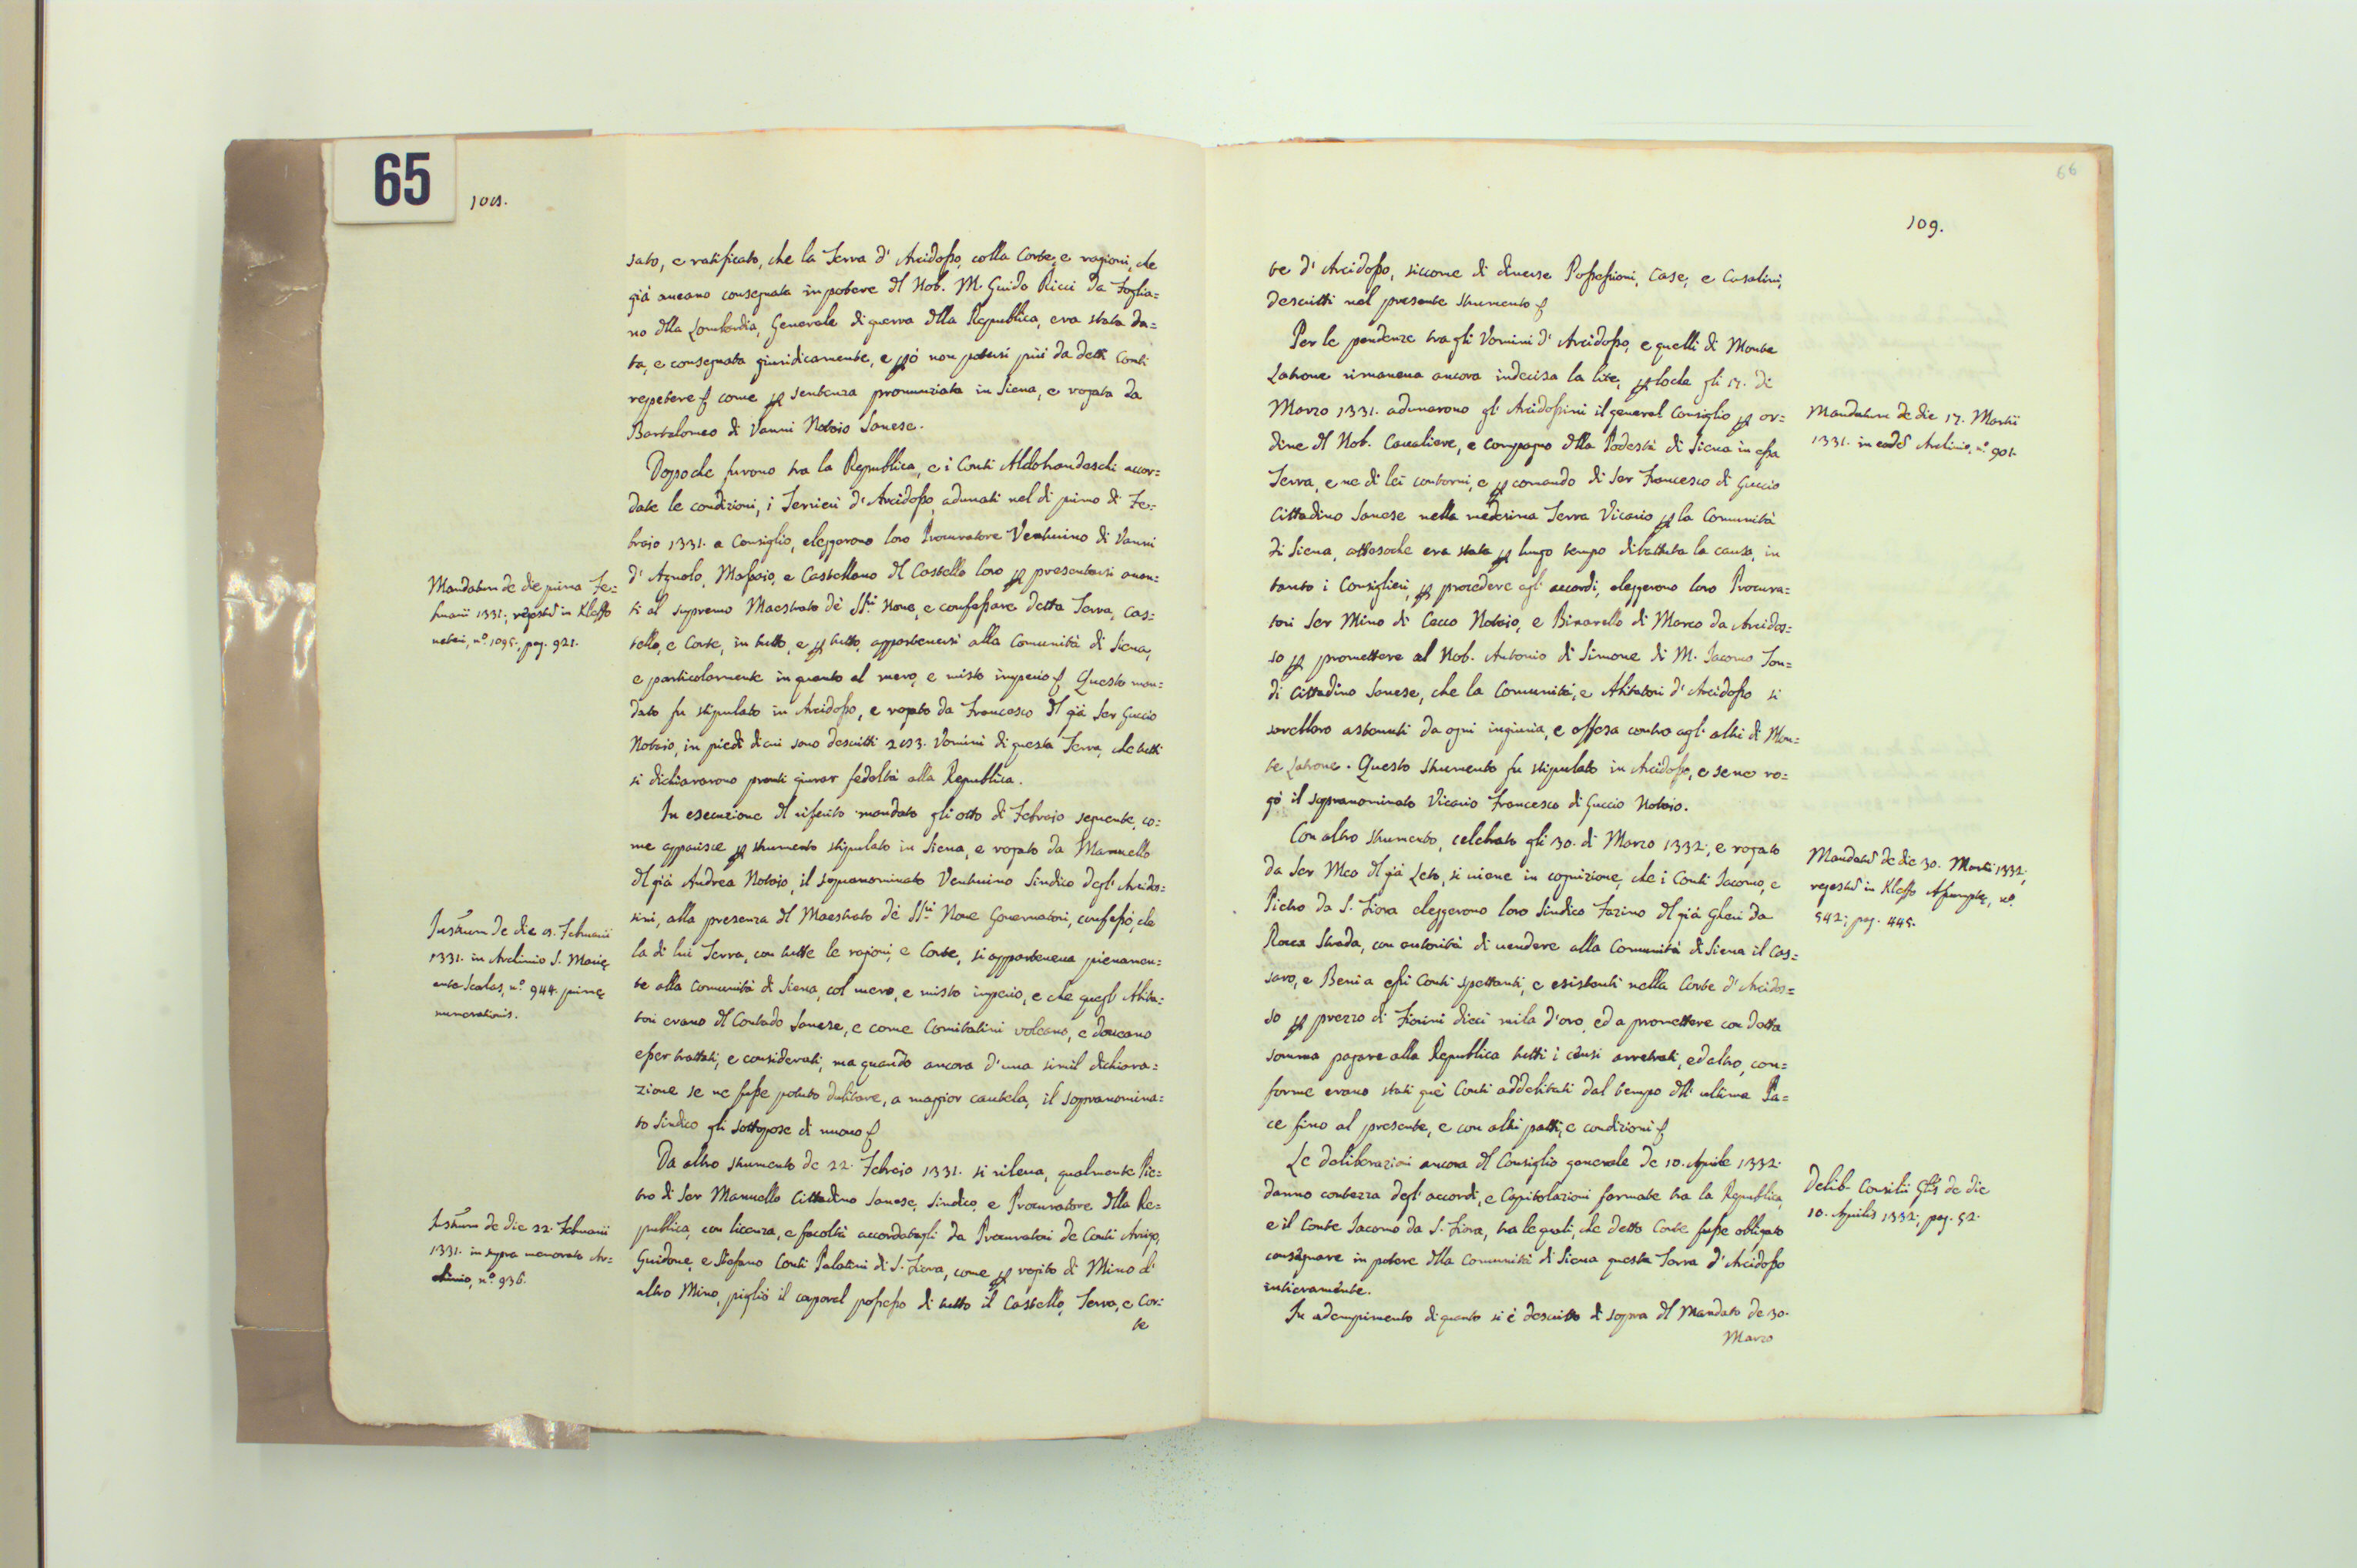 65
108.
sato, e ratificato, che la Terra d' Arcidosso, colla Corte, e ragioni, che
già aveano consegnata in potere dl Nob. M. Guido Ricci da Foglia=
no dlla Lombardia, Generale di guerra dlla Republica, era stata da=
ta, e consegnata giuridicamente, e però non potersi più da detti Conti
repetere come per sentenza pronunziata in Siena, e rogata da
Bartolomeo di Vanni Notaio Sanese.
Dopoche furono tra la Republica, e i Conti Aldobrandeschi accor=
date le condizioni, i Terrieri d' Arcidosso, adunati nel dì primo di Fe=
braio 1331. a Consiglio, eleggerono loro Procuratore Venturino di Vanni
d' Agnolo, Massaio, e Castellano dl Castello loro per presentarsi avan=
ti al supremo Maestrato dè SSri Nove, e confessare detta Terra, Cas=
tello, e Corte, in tutto, e per tutto, appartenersi alla Comunità di Siena,
e particolarmente in quanto al mero, e misto imperio Questo man=
dato fu stipulato in Arcidosso, e rogato da Francesco dl già Ser Guccio
Notaio, in piedi di cui sono descritti 283. Uomini di questa Terra, che tutti
si dichiararono pronti giurar fedeltà alla Republica.
Mandatum de die prima Fe=
bruarii 1331; regestũ in Kleffo
veteri, nº. 1095., pag. 921.
In esecuzione dl riferito mandato gli otto di Febraio seguente, co=
me apparisce per strumento stipulato in Siena, e rogato da Mannello
dl già Andrea Notaio, il sopranominato Venturino Sindico degl' Arcidos=
sini, alla presenza dl Maestrato dè SSri Nove Governatori, confessò, che
la di lui Terra, con tutte le ragioni, e Corte, si apparteneva pienamen=
te alla Comunità di Siena, col mero, e misto imperio, e che quegl' Abita=
tori erano dl Contado Sanese, e come Comitatini volcano, e doveano
esser trattati, e considerati, ma quando ancora d' una simil dichiara=
zione se ne fusse potuto dubitare, a maggior cautela, il sopranomina=
to Sindico gli sottopose di nuovo
Instrum de die 8. Februarii
1331. in Archivio S. Marię
ante Scalas, nº. 944. primę
numerationis.
Da altro strumento de 22. Febraio 1331. si rileva, qualmente Pie=
tro di Ser Mannello Cittadino Sanese, Sindico, e Procuratore dlla Re=
publica, con licenza, e facoltà accordatagli da Procuratori de Conti Arrigo,
Guidone, e Stefano Conti Palatini di S. Fiora, come per rogito di Mino d'
altro Mino, pigliò il corporal possesso di tutto il Castello, Terra, e Cor=
te
Instrum de die 22. Februarii
1331. in supra memorato Ar=
chivio, nº. 936.
66
109.
te d' Arcidosso, siccome di diverse Possessioni, Case, e Casalini,
descritti nel presente strumento
Per le pendenze tra gli Uomini d' Arcidosso, e quelli di Monte
Latrone rimaneva ancora indecisa la lite, perloche gli 17. di
Marzo 1331. adunarono gl' Arcidossini il general Consiglio per or=
dine dl Nob. Cavaliere, e compagno dlla Podestà di Siena in essa
Terra, e ne di lei contorni, e per comando di Ser Francesco di Guccio
Cittadino Sanese nella medesima Terra Vicario per la Comunità
di Siena, attesoche era stata per lungo tempo dibattuta la causa, in
tanto i Consiglieri, per procedere agl' accordi, eleggerono loro Procura=
tori Ser Mino di Cecco Notaio, e Binarello di Marco da Arcidos=
so per promettere al Nob. Antonio di Simone di M. Iacomo Ton=
di Cittadino Sanese, che la Comunità, e Abitatori d' Arcidosso si
sarebbero astenuti da ogni ingiuria, e offesa contro agl' altri di Mon=
te Latrone. Questo strumento fu stipulato in Arcidosso, e sene ro=
gò il sopranominato Vicario Francesco di Guccio Notaio.
Mandatum de die 17. Martii
1331. in eodẽ Archivio, nº. 901.
Con altro strumento, celebrato gli 30. di Marzo 1332., e rogato
da Ser Meo dl già Leto, si viene in cognizione, che i Conti Iacomo, e
Pietro da S. Fiora eleggerono loro Sindico Fazino dl già Gheri da
Rocca Strada, con autorità di vendere alla Comunità di Siena il Cas=
saro, e Beni a essi Conti spettanti, e esistenti nella Corte d' Arcidos=
so per prezzo di Fiorini dieci mila d'oro, ed a promettere con detta
somma pagare alla Republica tutti i censi arretrati, ed altro, con=
forme erano stati què Conti addebitati dal tempo dll' ultima Pa=
ce fino al presente, e con altri patti, e condizioni
Mandatũ de die 30. Martii 1332.,
regestũ in Kleffo Assumptę, nº.
542; pag. 445.
Le deliberazioni ancora dl Consiglio generale de 10. Aprile 1332.
danno contezza degl' accordi, e Capitolazioni formate tra la Republica,
e il Conte Iacomo da S. Fiora, tra le quali, che detto Conte fusse obligato
consegnare in potere dlla Comunità di Siena questa Terra d' Arcidosso
intieramente.
Delib. Consilii Gñlis de die
10. Aprilis 1332., pag. 52.
In adempimento di quanto si è descritto di sopra dl Mandato de 30.
Marzo